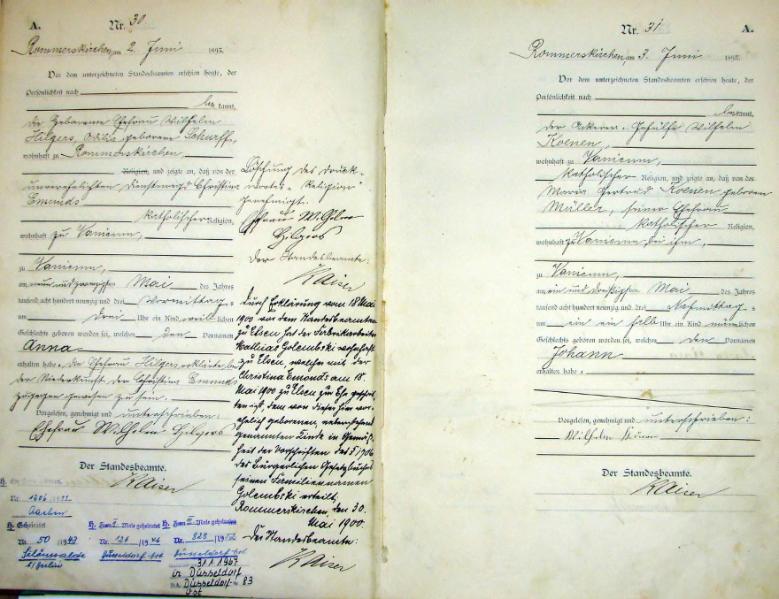 A.
Nr. 30
Rommerskirchen, am 2. Juni 1893.
Vor dem unterzeichneten Standesbeamten erschien heute, der
Persönlichkeit nach
be kannt,
die Hebamme Ehefrau Wilhelm
Hilgers, geborene Schurff,
wohnhaft zu Rommerskirchen,
Religion, und zeigte an, daß von der
unverehelichten Dienstmagd Christine
Emunds
katholischer Religion,
wohnhaft zu Vanikum,
zu Vanikum,
am neun und zwanzigsten Mai des Jahres
tausend acht hundert neunzig und drei Vormittags
um drei Uhr ein Kind weiblichen
Geschlechts geboren worden sei, welches den Vornamen
Anna
erhalten habe. Die Ehefrau Hilgers erklärte, bei
der Niederkunft der Christine Emunds
zugegen gewesen zu sein.
Vorgelesen, genehmigt und unterschrieben:
Ehefrau Wilhelm Hilgers
Der Standesbeamte.
Kaiser
Löschung des Druck-
wortes "Religion"
genehmigt.
Frau Wilhm
Hilgers
Der Standesbeamte:
Kaiser
Durch Erklärung vom 18 Mai
1900 vor dem Standesbeamten
zu Elsen hat der Fabrikarbeiter
Mathias Golembski wohnhaft
zu Elsen, welcher mit der
Christina Emonds am 18.
Mai 1900 zu Elsen die Ehe geschlos-
sen, dem von dieser hier vor-
ehelich geborenen, nebenstehend
genannten Kinde in Gemäß-
heit der Vorschriften des § 1706
des Bürgerlichen Gesetzbuches
seinen Familiennamen
Golembski erteilt.
Rommerskirchen, den 30.
Mai 1900.
Der Standesbeamte:
Kaiser
Nr.
Aachen
Geheiratet
Nr. 50 /19
Zum Male geheiratet
Nr. /19
Düsseldorf-Ost
Zum Male geheiratet
Nr. /19
Düsseldorf-Ost
31.1.1967
in Düsseldorf
Düsseldorf- 83
Ost
Nr. 31
A.
Rommerskirchen, am 3. Juni 1893.
Vor dem unterzeichneten Standesbeamten erschien heute, der
Persönlichkeit nach
bekannt,
der Ackerer-Gehülfe Wilhelm
Koenen,
wohnhaft zu Vanikum,
katholischer Religion, und zeigte an, daß von der
Maria Gertrud Koenen geborenen
Müller, seiner Ehefrau
katholischer Religion,
wohnhaft zu Vanikum bei ihm,
zu Vanikum,
am ein und dreißigsten Mai des Jahres
tausend acht hundert neunzig und drei Nachmittags
um ein ein halb Uhr ein Kind männlichen
Geschlechts geboren worden sei, welches den Vornamen
Johann
erhalten habe.
Vorgelesen, genehmigt und unterschrieben:
Wilhelm
Der Standesbeamte.
Kaiser